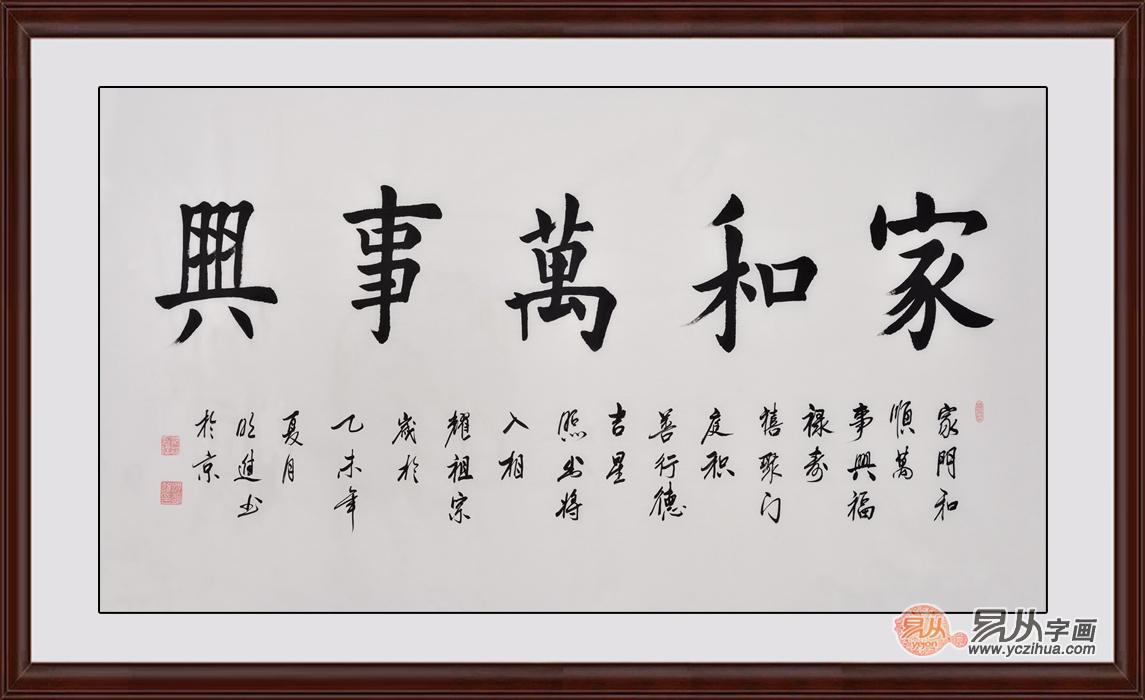 家和萬事興
家門和
順萬
事興福
禄寿
禧聚门
庭积
善行德
吉星
照出将
入相
耀祖宗
歲於
乙未年
夏月
进书
於京
易从
yeqon
易从字画
www.yczihua.com